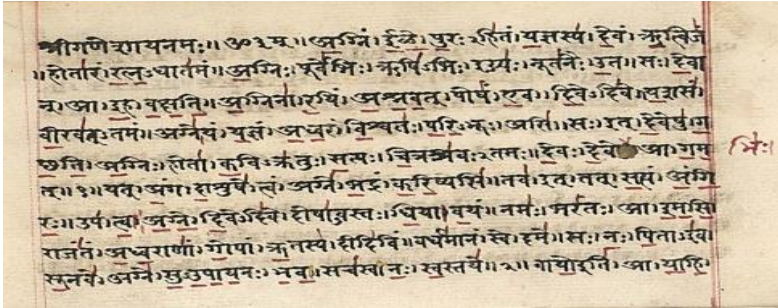 श्रीगणेशायनमः॥ॐ३म्॥अग्निं।ईळे।पुरःऽहितं।यज्ञस्य।देवं।ऋत्विजं
॥होतारं।रत्नऽधातमं॥अग्निः।पूर्वेभिः।ऋषिऽभिः।ईड्यः।नूतनैः।उत॥सः।देवा
न्।आ।इह।वक्षति॥अग्निना।रयिं।अश्नवत्।पोषं।एव।दिवेऽदिवे॥यशसं
वीरवत्ऽतमं॥अग्ने।यं।यज्ञं।अध्वरं।विश्वतः।परिऽभूः।असि॥सः।इत्।देवेषु।ग
च्छति।अग्निः।होता।कविऽक्रतुः।सत्यः।चित्रश्रवःऽतमः॥देवः।देवे आ।गम
भिः
त्॥१॥यत्।अंग।दाशुषे।त्वं।अग्ने।भद्रं।करिष्यसि॥तव।इत्।तत्।सत्यं।अंगि
रः॥उप।त्वा।अग्ने।दिवेऽदिवे।दोषाऽवस्तः।धिया।वयं॥नमः।भरंतः।आ।इमसि
राजंतं।अध्वराणां।गोपां।ऋतस्य।दीदिविं॥वर्धमानं।स्वे।दमे॥सः।नः।पिताऽइव
सूनवे।अग्ने।सुऽउपायनः।भव॥सचस्व।नः।स्वस्तये॥२॥वायोइति।आ।याहि।